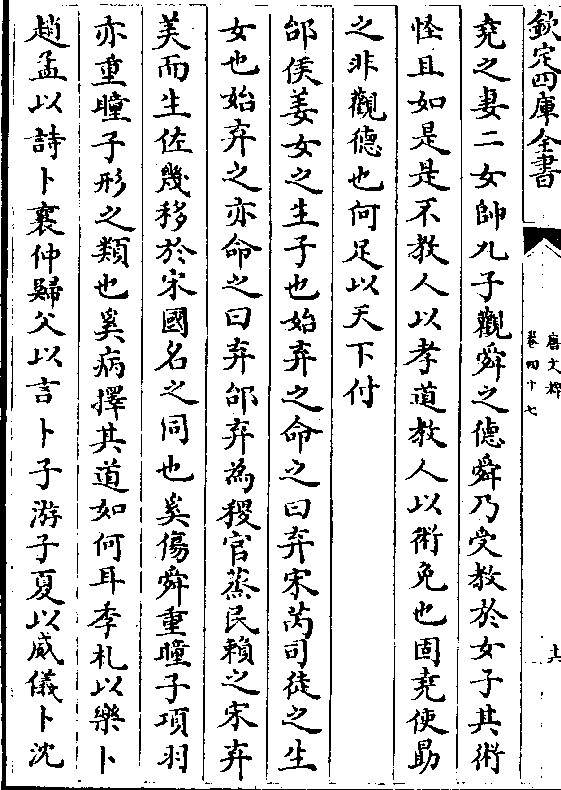 欽定四庫全書
唐文粹
卷四十七
十六
堯之妻二女帥九子觀舜之德舜乃受教於女子其術
怪且如是是不教人以孝道教人以術免也固堯使勗
之非觀德也何足以天下付
邰侯姜女之生子也始弃之命之曰弃宋芮司徒之生
女也始弃之亦命之曰弃邰弃為稷官蒸民賴之宋弃
美而生佐幾移於宋國名之同也奚傷舜重瞳子項羽
亦重瞳子形之類也奚病擇其道如何耳季札以樂卜
趙孟以詩卜襄仲歸父以言卜子游子夏以威儀卜沈